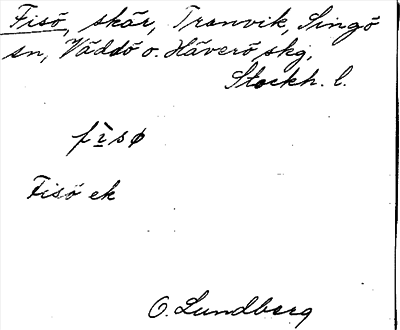 Fisö, skär, Tranvik, Singö
sn, Väddö o. Häverö skg,
Stockh. l.
fìsø
Fisö ek
O. Lundberg